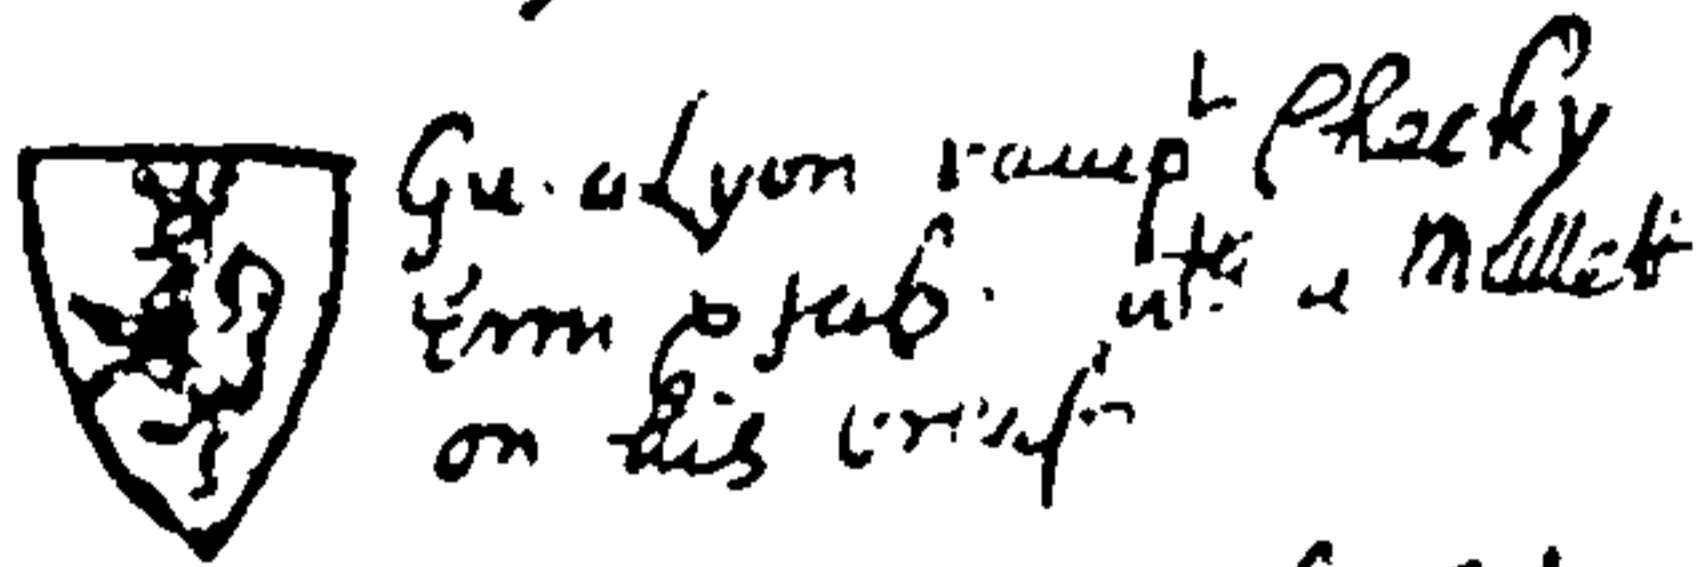 Gu. a Lyon ramp^t Checky
Erm & Sab. wth a Mullett
on his